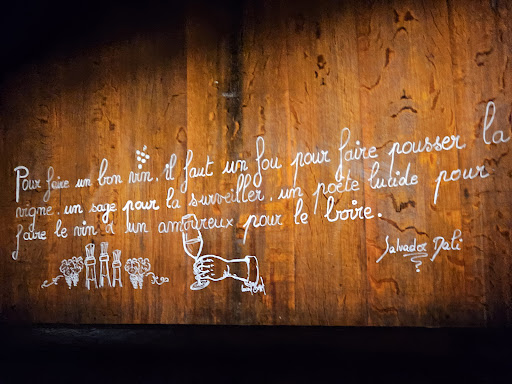 Pour faire un bon vin, il faut un fou pour faire pousser la
vigne, un sage pour la surveiller, un poète lucide pour
faire le vin & un amoureux pour le boire.
Salvador Dali
?